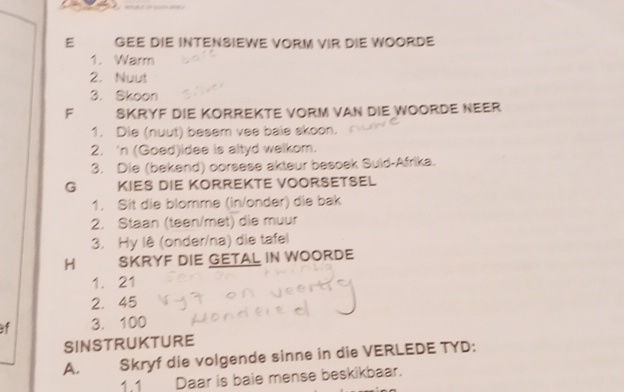 E GEE DIE INTENSIEWE VORM VIR DIE WOORDE
1. Warm baie
2. Nuut
3. Skoon Silver
F SKRYF DIE KORREKTE VORM VAN DIE WOORDE NEER
1. Die (nuut) besem vee baie skoon. nuwe
2. 'n (Goed)idee is altyd welkom.
3. Die (bekend) oorsese akteur besoek Suid-Afrika.
G KIES DIE KORREKTE VOORSETSEL
1. Sit die blomme (in/onder) die bak
2. Staan (teen/met) die muur
3. Hy lê (onder/na) die tafel
H SKRYF DIE GETAL IN WOORDE
1. 21 een en twintig
2. 45 vyf en veertig
3. 100
ef
SINSTRUKTURE
A. Skryf die volgende sinne in die VERLEDE TYD:
1.1 Daar is baie mense beskikbaar.